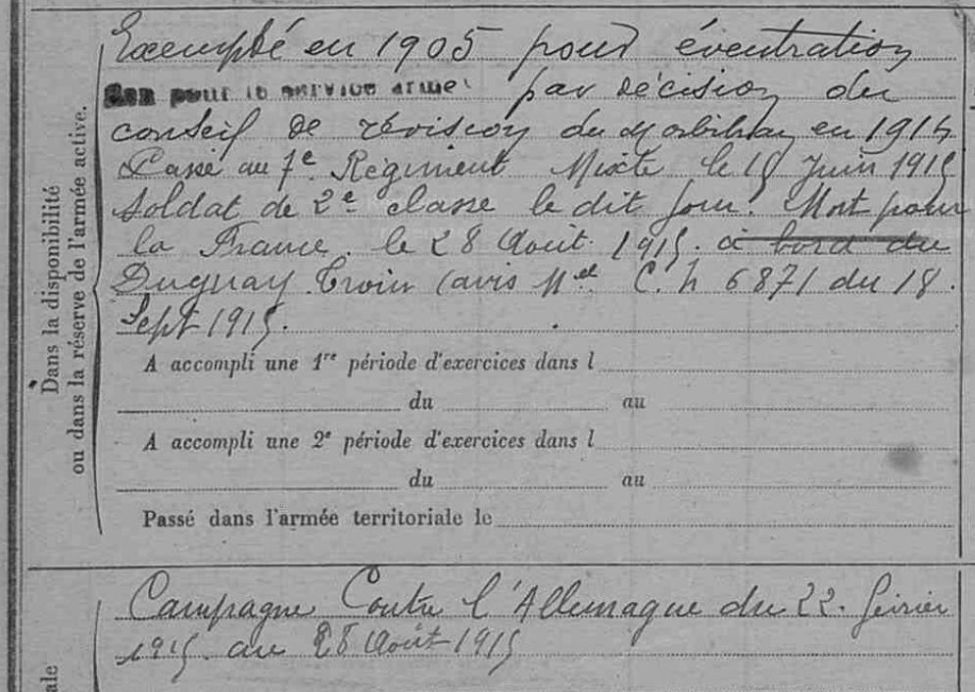 Exempté en 1905 pour éventration
Bon pour le service armé par décision du
conseil de révision du Morbihan en 1914
Passé au 7e Régiment Mixte le 15 Juin 1915
Soldat de 2e classe le dit jour. Mort pour
la France le 28 Août 1915. à bord du
Duguay Trouin (avis Mel C. h 6871 du 18.
Sept 1915.
A accompli une 1re période d'exercices dans l
du au
A accompli une 2e période d'exercices dans l
du au
Passé dans l'armée territoriale le
Dans la disponibilité
ou dans la réserve de l'armée active.
Campagne Contre l'Allemagne du 22. février
1915 au 28 Août 1915
ale